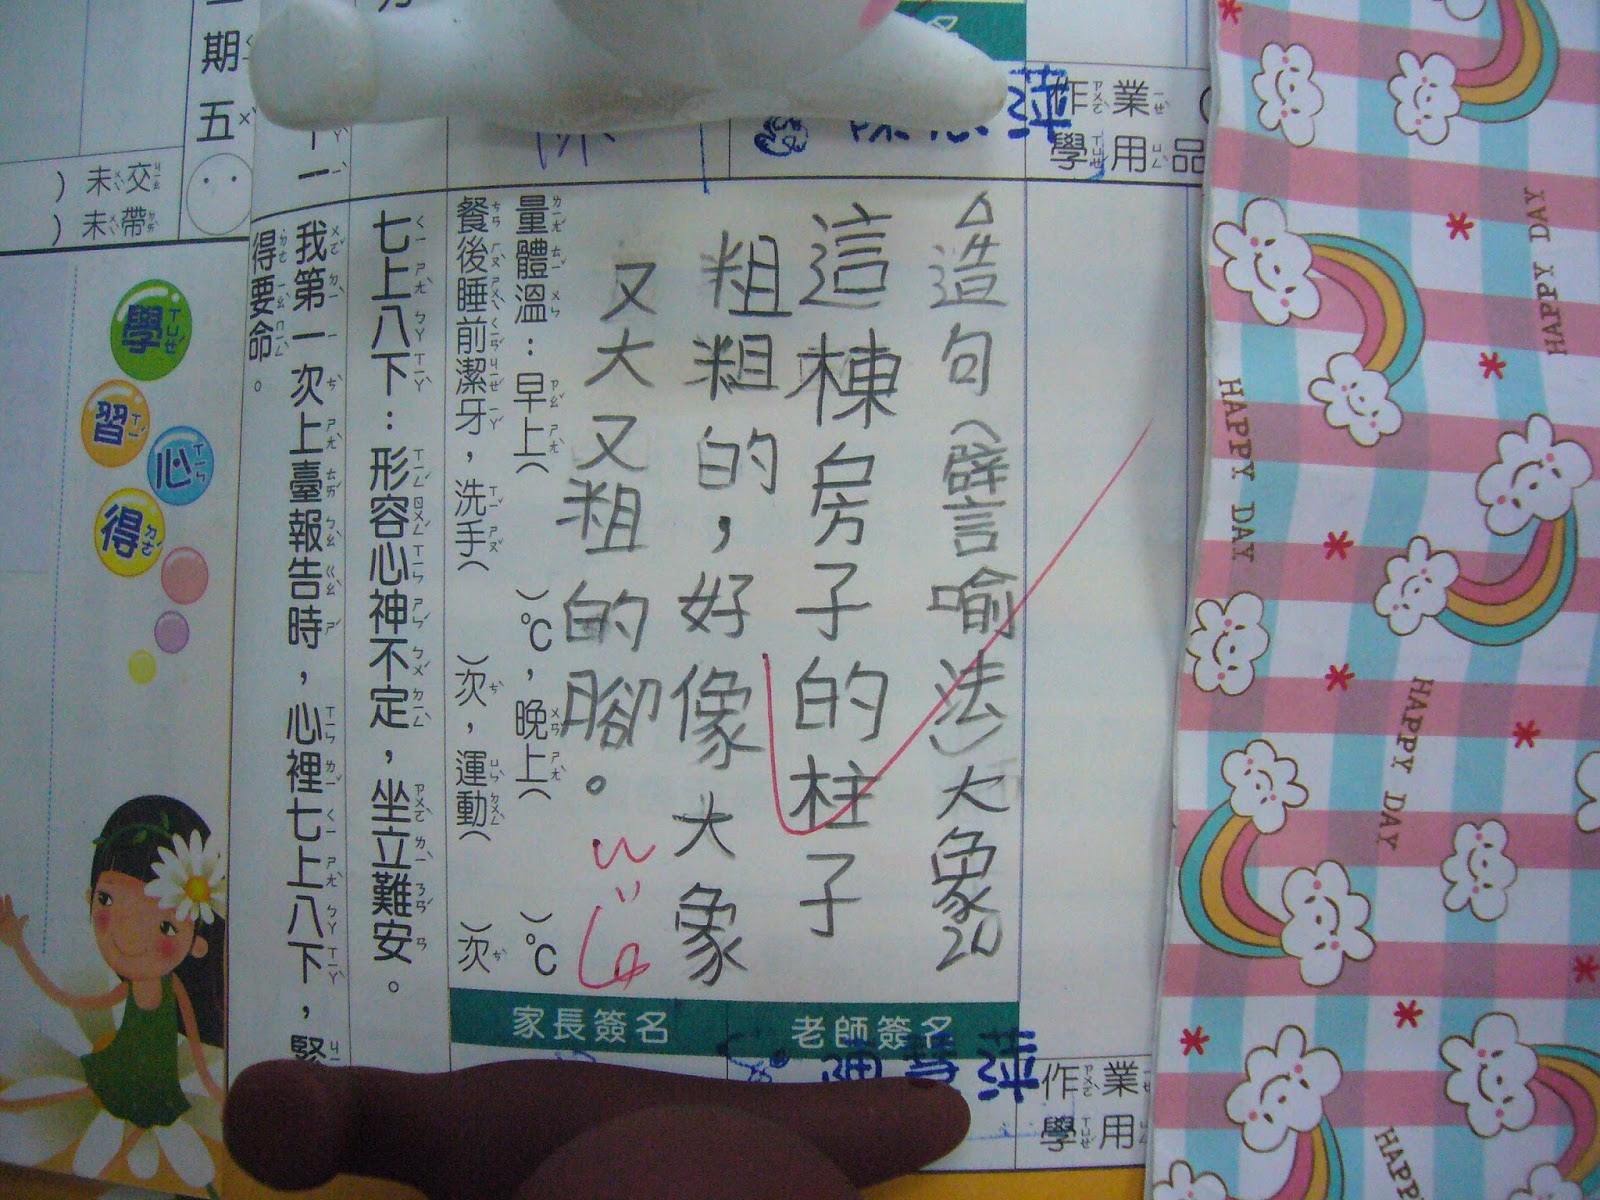 作業
學用品
△造句(譬喻法)大象20
這棟房子的柱子
粗粗的，好像大象
又大又粗的腳。
量體溫：早上( )℃，晚上( )℃
餐後睡前潔牙，洗手( )次，運動( )次
家長簽名
老師簽名
作業
學用
七上八下：形容心神不定，坐立難安。
我第一次上臺報告時，心裡七上八下，緊
得要命。
期五
未交
未帶
學習心得
HAPPY DAY
HAPPY DAY
HAPPY DAY
HAPPY DAY
HAPPY DAY
HAPPY